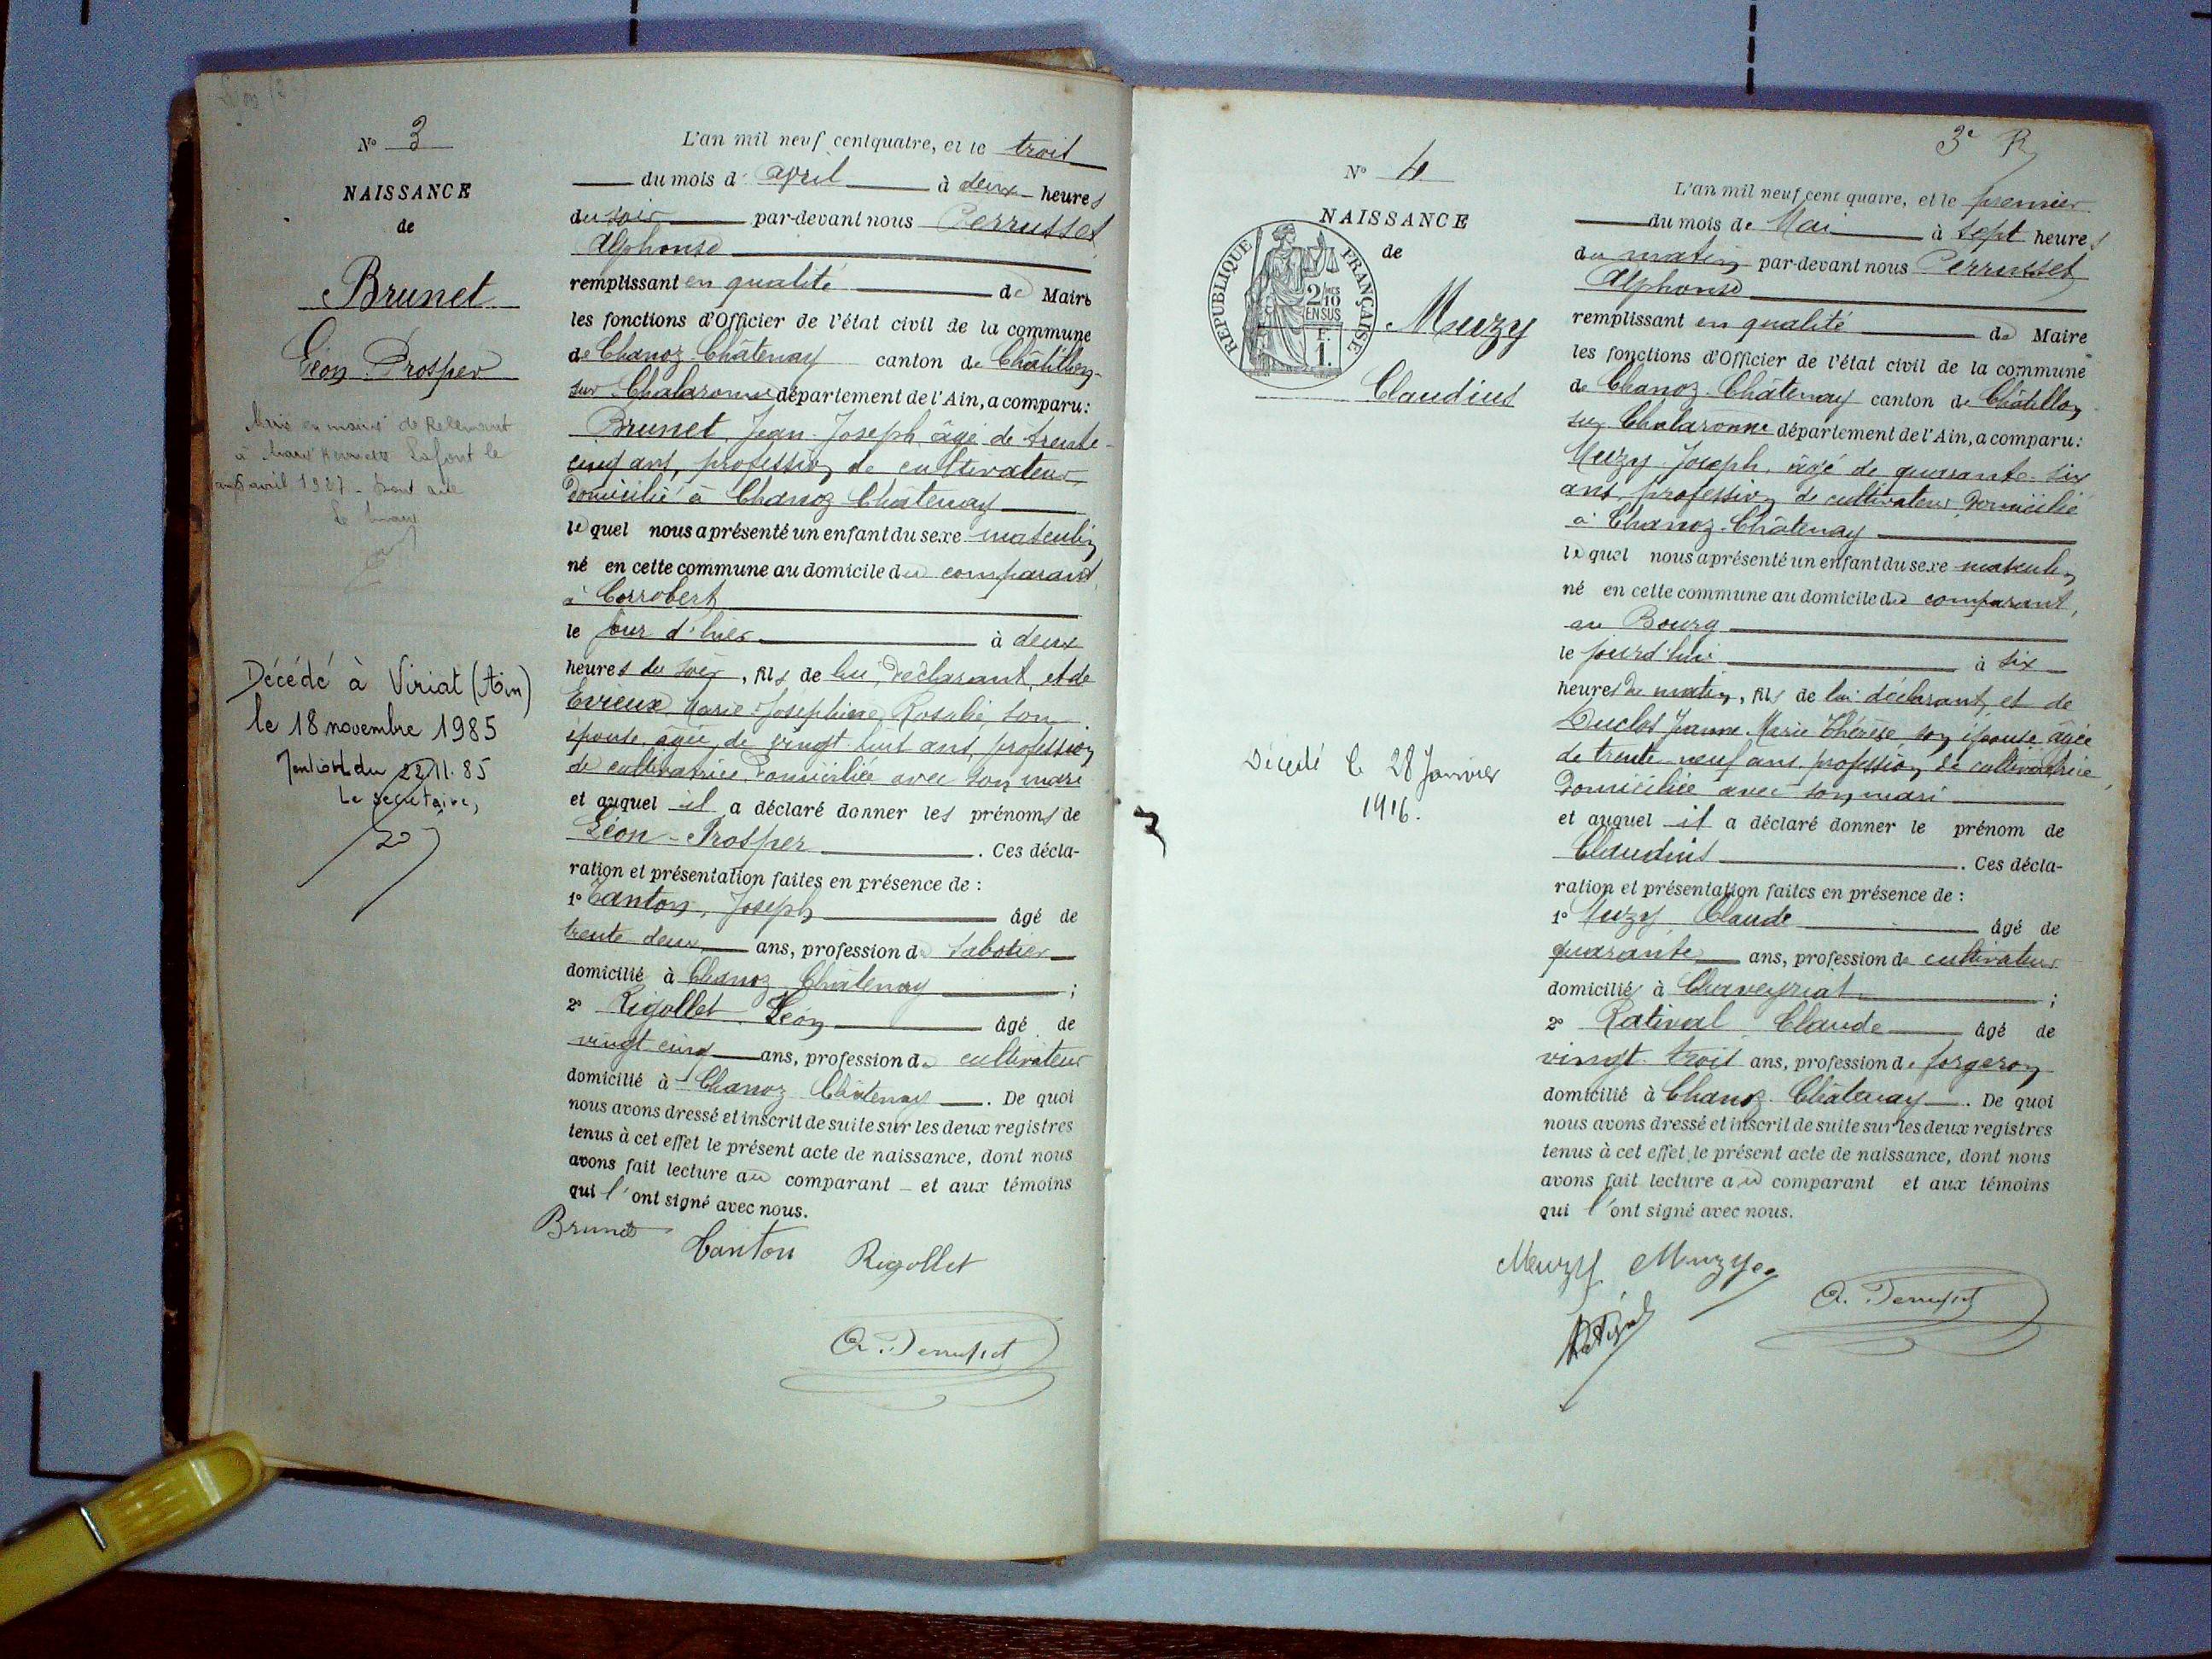 N° 3
NAISSANCE
de
Brunet
Léon Prosper
Marié en mairie de
à Lafont le
avril 1927
Décédé à Viriat (Ain)
le 18 novembre 1985
du 22.11.85
Le secrétaire,
L'an mil neuf cent quatre, et le trois
du mois d'avril à deux heures
du soir par-devant nous Perrusset
Alphonse
remplissant en qualité de Maire
les fonctions d'Officier de l'état civil de la commune
de Chanoz Châtenay canton de Châtillon-
sur Chalaronne département de l'Ain, a comparu :
Brunet, Jean-Joseph, âgé de trente-
cinq ans, profession de cultivateur
domicilié à Chanoz Châtenay
lequel nous a présenté un enfant du sexe masculin
né en cette commune au domicile du comparant,
à Corrobert
le jour d'hier à deux
heures du soir, fils de lui, déclarant, et de
Evieux, Marie-Joséphine, Rosalie son
épouse, âgée de vingt huit ans, profession
de cultivatrice, domiciliée avec son mari
et auquel il a déclaré donner les prénoms de
Léon-Prosper. Ces décla-
ration et présentation faites en présence de :
1° Canton, Joseph âgé de
trente deux ans, profession de sabotier
domicilié à Chanoz Châtenay ;
2° Rigollet Léon âgé de
vingt cinq ans, profession de cultivateur
domicilié à Chanoz Châtenay. De quoi
nous avons dressé et inscrit de suite sur les deux registres
tenus à cet effet le présent acte de naissance, dont nous
avons fait lecture au comparant et aux témoins
qui l'ont signé avec nous.
Brunet Canton Rigollet
A. Perrusset
3e R
N° 4
NAISSANCE
de
RÉPUBLIQUE FRANÇAISE
2/10 EN SUS
F.
1.
Muzy
Claudius
Décédé le 28 Janvier
1916.
L'an mil neuf cent quatre, et le premier
du mois de Mai à sept heures
du matin par-devant nous Perrusset
Alphonse
remplissant en qualité de Maire
les fonctions d'Officier de l'état civil de la commune
de Chanoz-Châtenay canton de Châtillon
sur Chalaronne département de l'Ain, a comparu :
Muzy Joseph, âgé de quarante-six
ans, profession de cultivateur domicilié
à Chanoz-Châtenay
lequel nous a présenté un enfant du sexe masculin
né en cette commune au domicile du comparant,
au Bourg
le jourd'hui à six
heures du matin, fils de lui déclarant, et de
Duclos Jeanne Marie Thérèse son épouse âgée
de trente neuf ans profession de cultivatrice,
domiciliée avec son mari
et auquel il a déclaré donner le prénom de
Claudius. Ces décla-
ration et présentation faites en présence de :
1° Muzy Claude âgé de
quarante ans, profession de cultivateur
domicilié à Chaveyriat ;
2° Ratival Claude âgé de
vingt-trois ans, profession de forgeron
domicilié à Chanoz Châtenay. De quoi
nous avons dressé et inscrit de suite sur les deux registres
tenus à cet effet le présent acte de naissance, dont nous
avons fait lecture au comparant et aux témoins
qui l'ont signé avec nous.
Muzy Muzy
Rativel
A. Perrusset